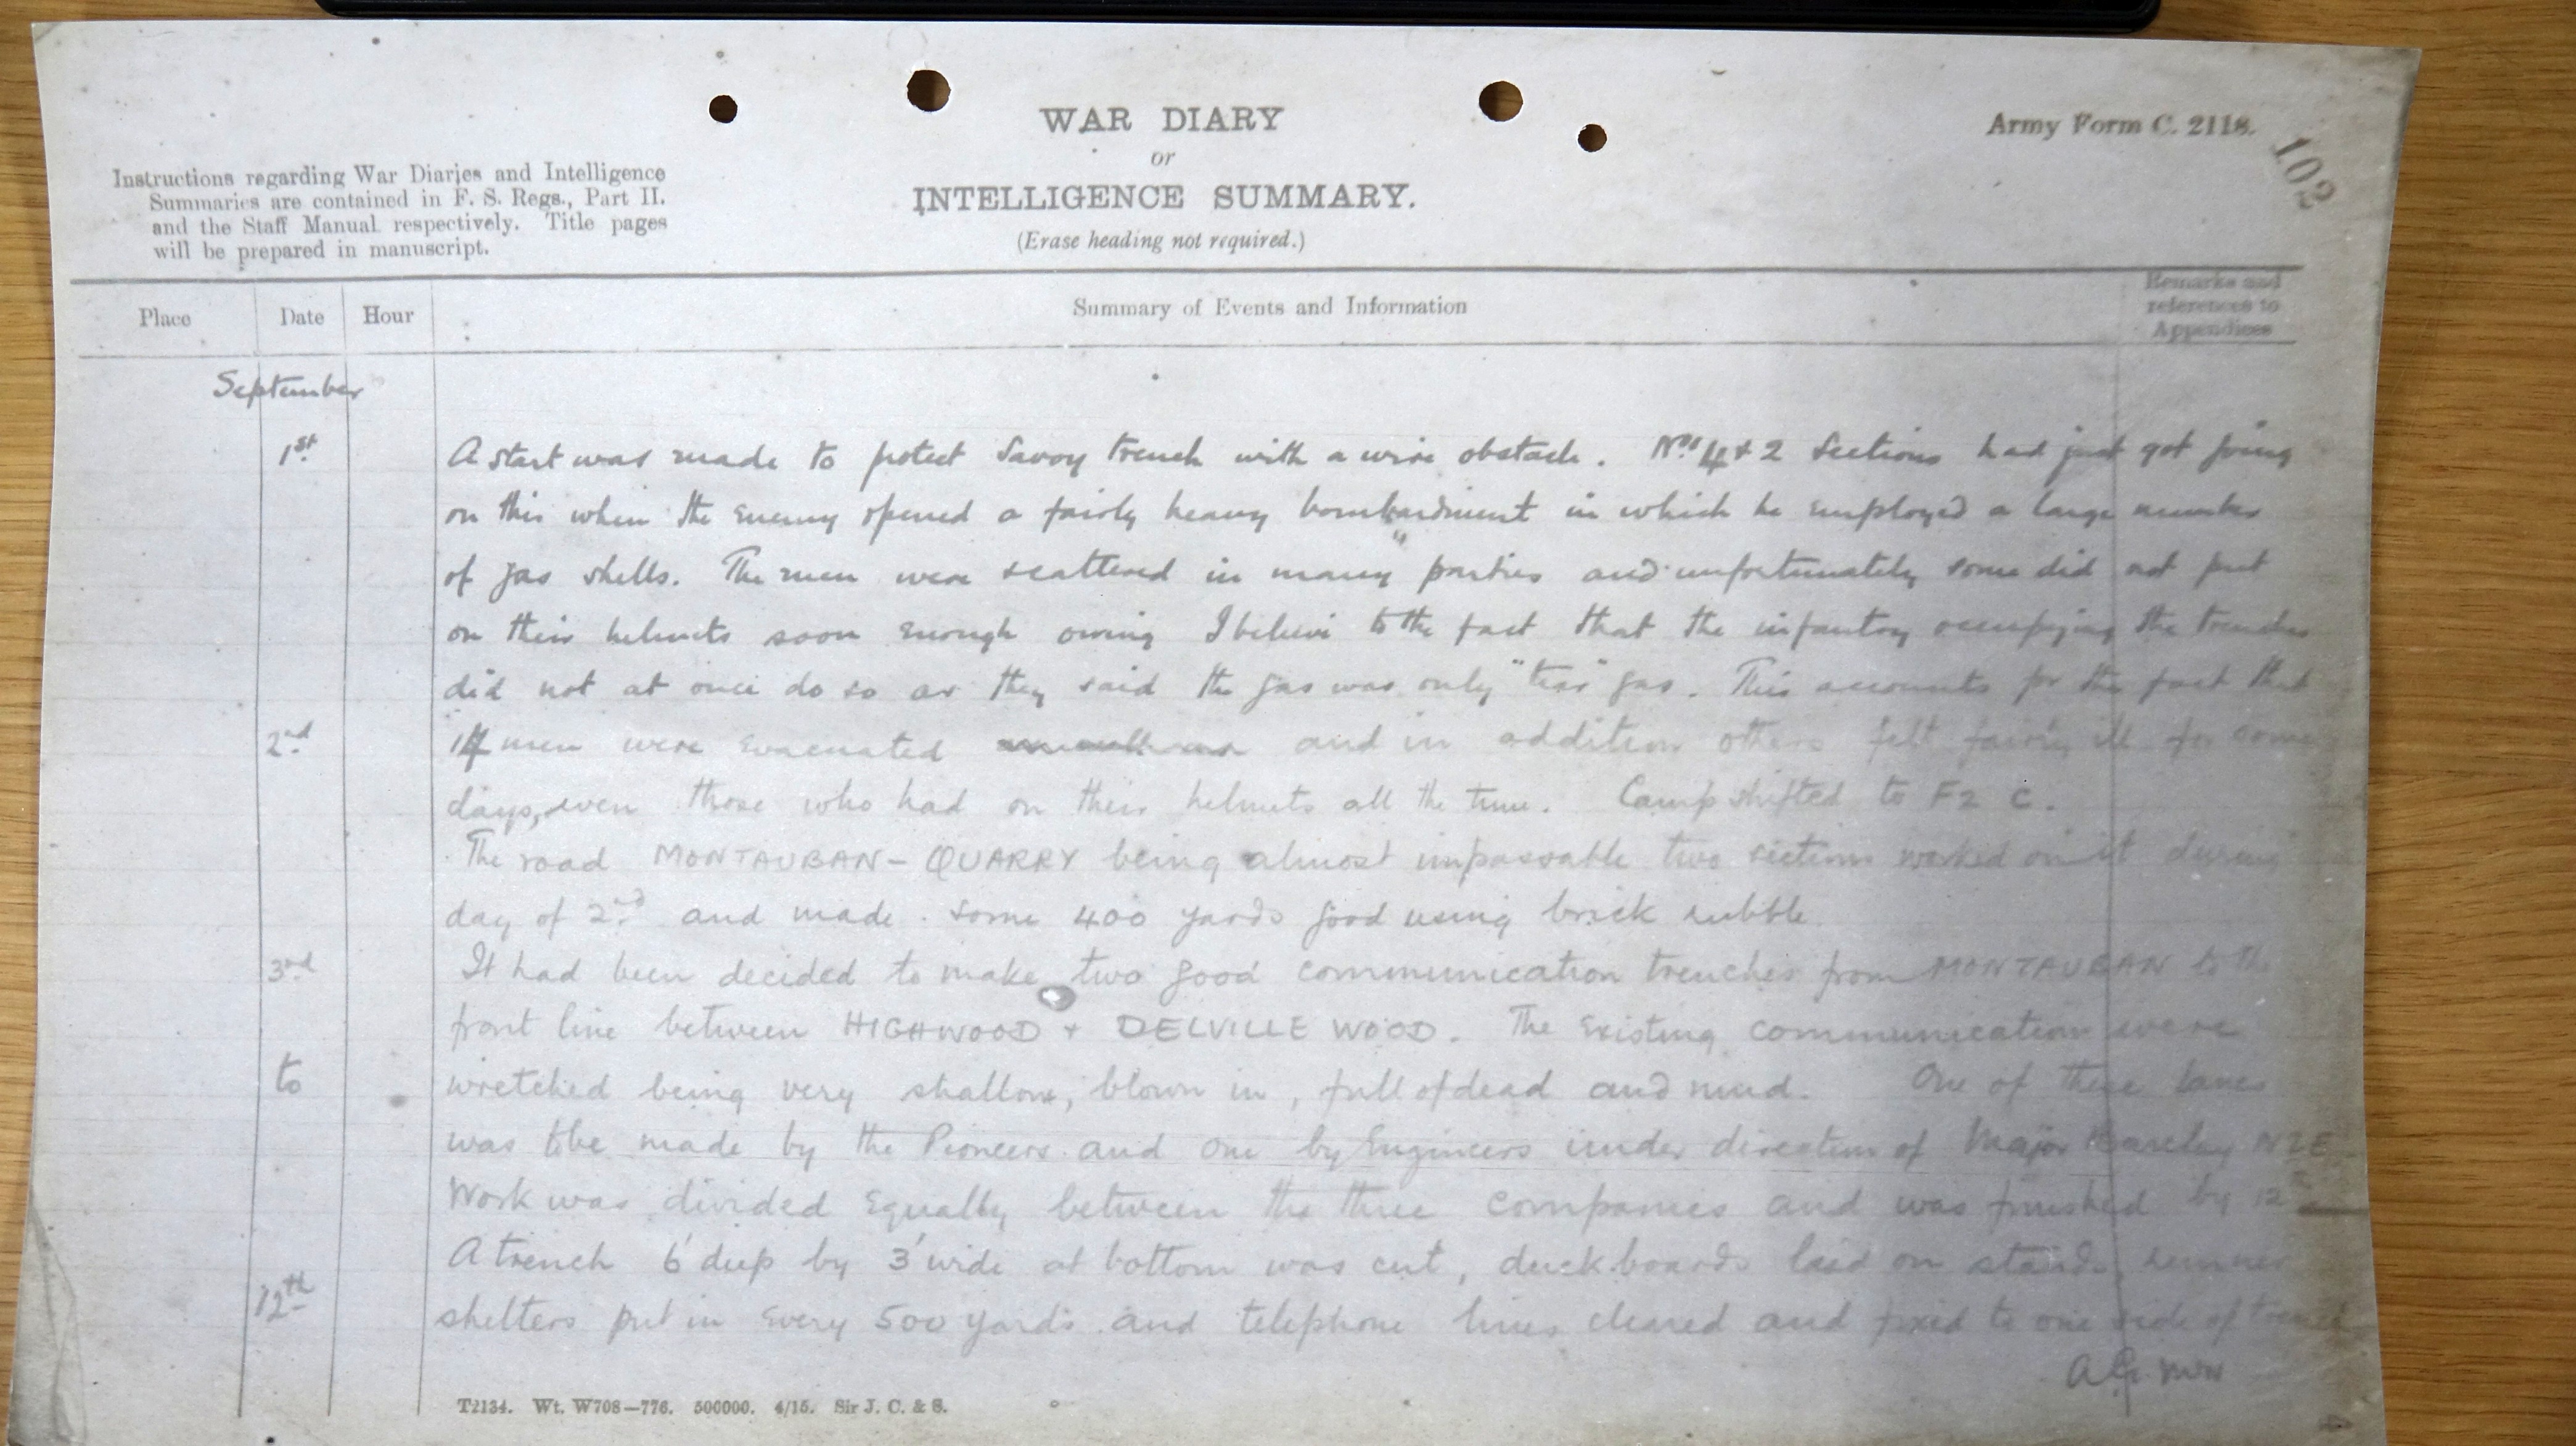 WAR DIARY
or
INTELLIGENCE SUMMARY.
(Erase heading not required.)
Army Form C. 2118.
102
Instructions regarding War Diaries and Intelligence
Summaries are contained in F. S. Regs., Part II.
and the Staff Manual respectively. Title pages
will be prepared in manuscript.
Place Date Hour Summary of Events and Information Remarks and references to Appendices
September
1st. A start was made to protect Savoy trench with a wire obstacle. Nos 4 & 2 Sections had just got going
on this when the enemy opened a fairly heavy bombardment in which he employed a large number
of gas shells. The men were scattered in many parties and unfortunately some did not put
on their helmets soon enough owing I believe to the fact that the infantry occupying the trenches
did not at once do so as they said the gas was only "tear" gas. This accounts for the fact that
2nd. 14 men were evacuated and in addition others felt fairly ill for some
days, even those who had on their helmets all the time. Camp shifted to F2 C.
The road MONTAUBAN - QUARRY being almost impassable two sections worked on it during
day of 2nd and made some 400 yards good using brick rubble.
3rd It had been decided to make two good communication trenches from MONTAUBAN to the
front line between HIGHWOOD + DELVILLE WOOD. The existing communication were
to wretched being very shallow, blown in, full of dead and mud. One of these lanes
was to be made by the Pioneers and one by Engineers under direction of Major Barclay NZE
Work was divided equally between the three companies and was finished by 12th
A trench 6' deep by 3' wide at bottom was cut, duckboards laid on stands,
12th shelters put in every 500 yards and telephone lines cleared and fixed to one side of trench
T2134. Wt. W708—776. 500000. 4/15. Sir J. C. & S.